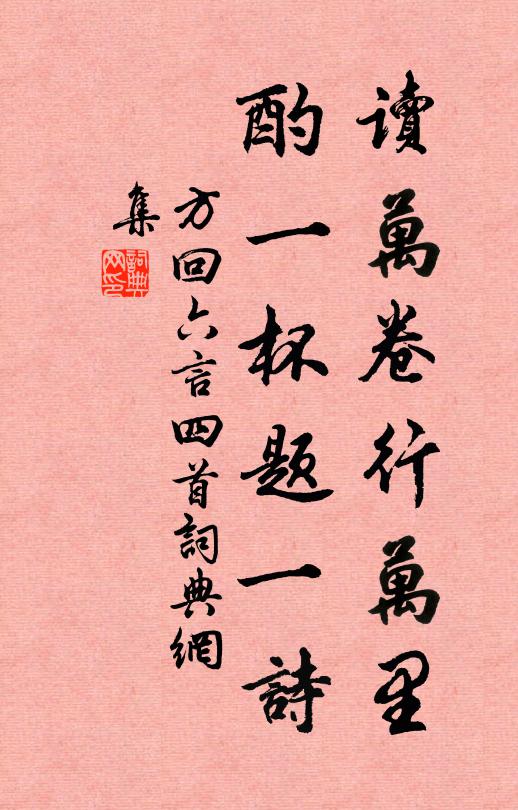 讀萬卷行萬里
酌一杯题一詩
方回六言四首詞典網
集
詞典
网印